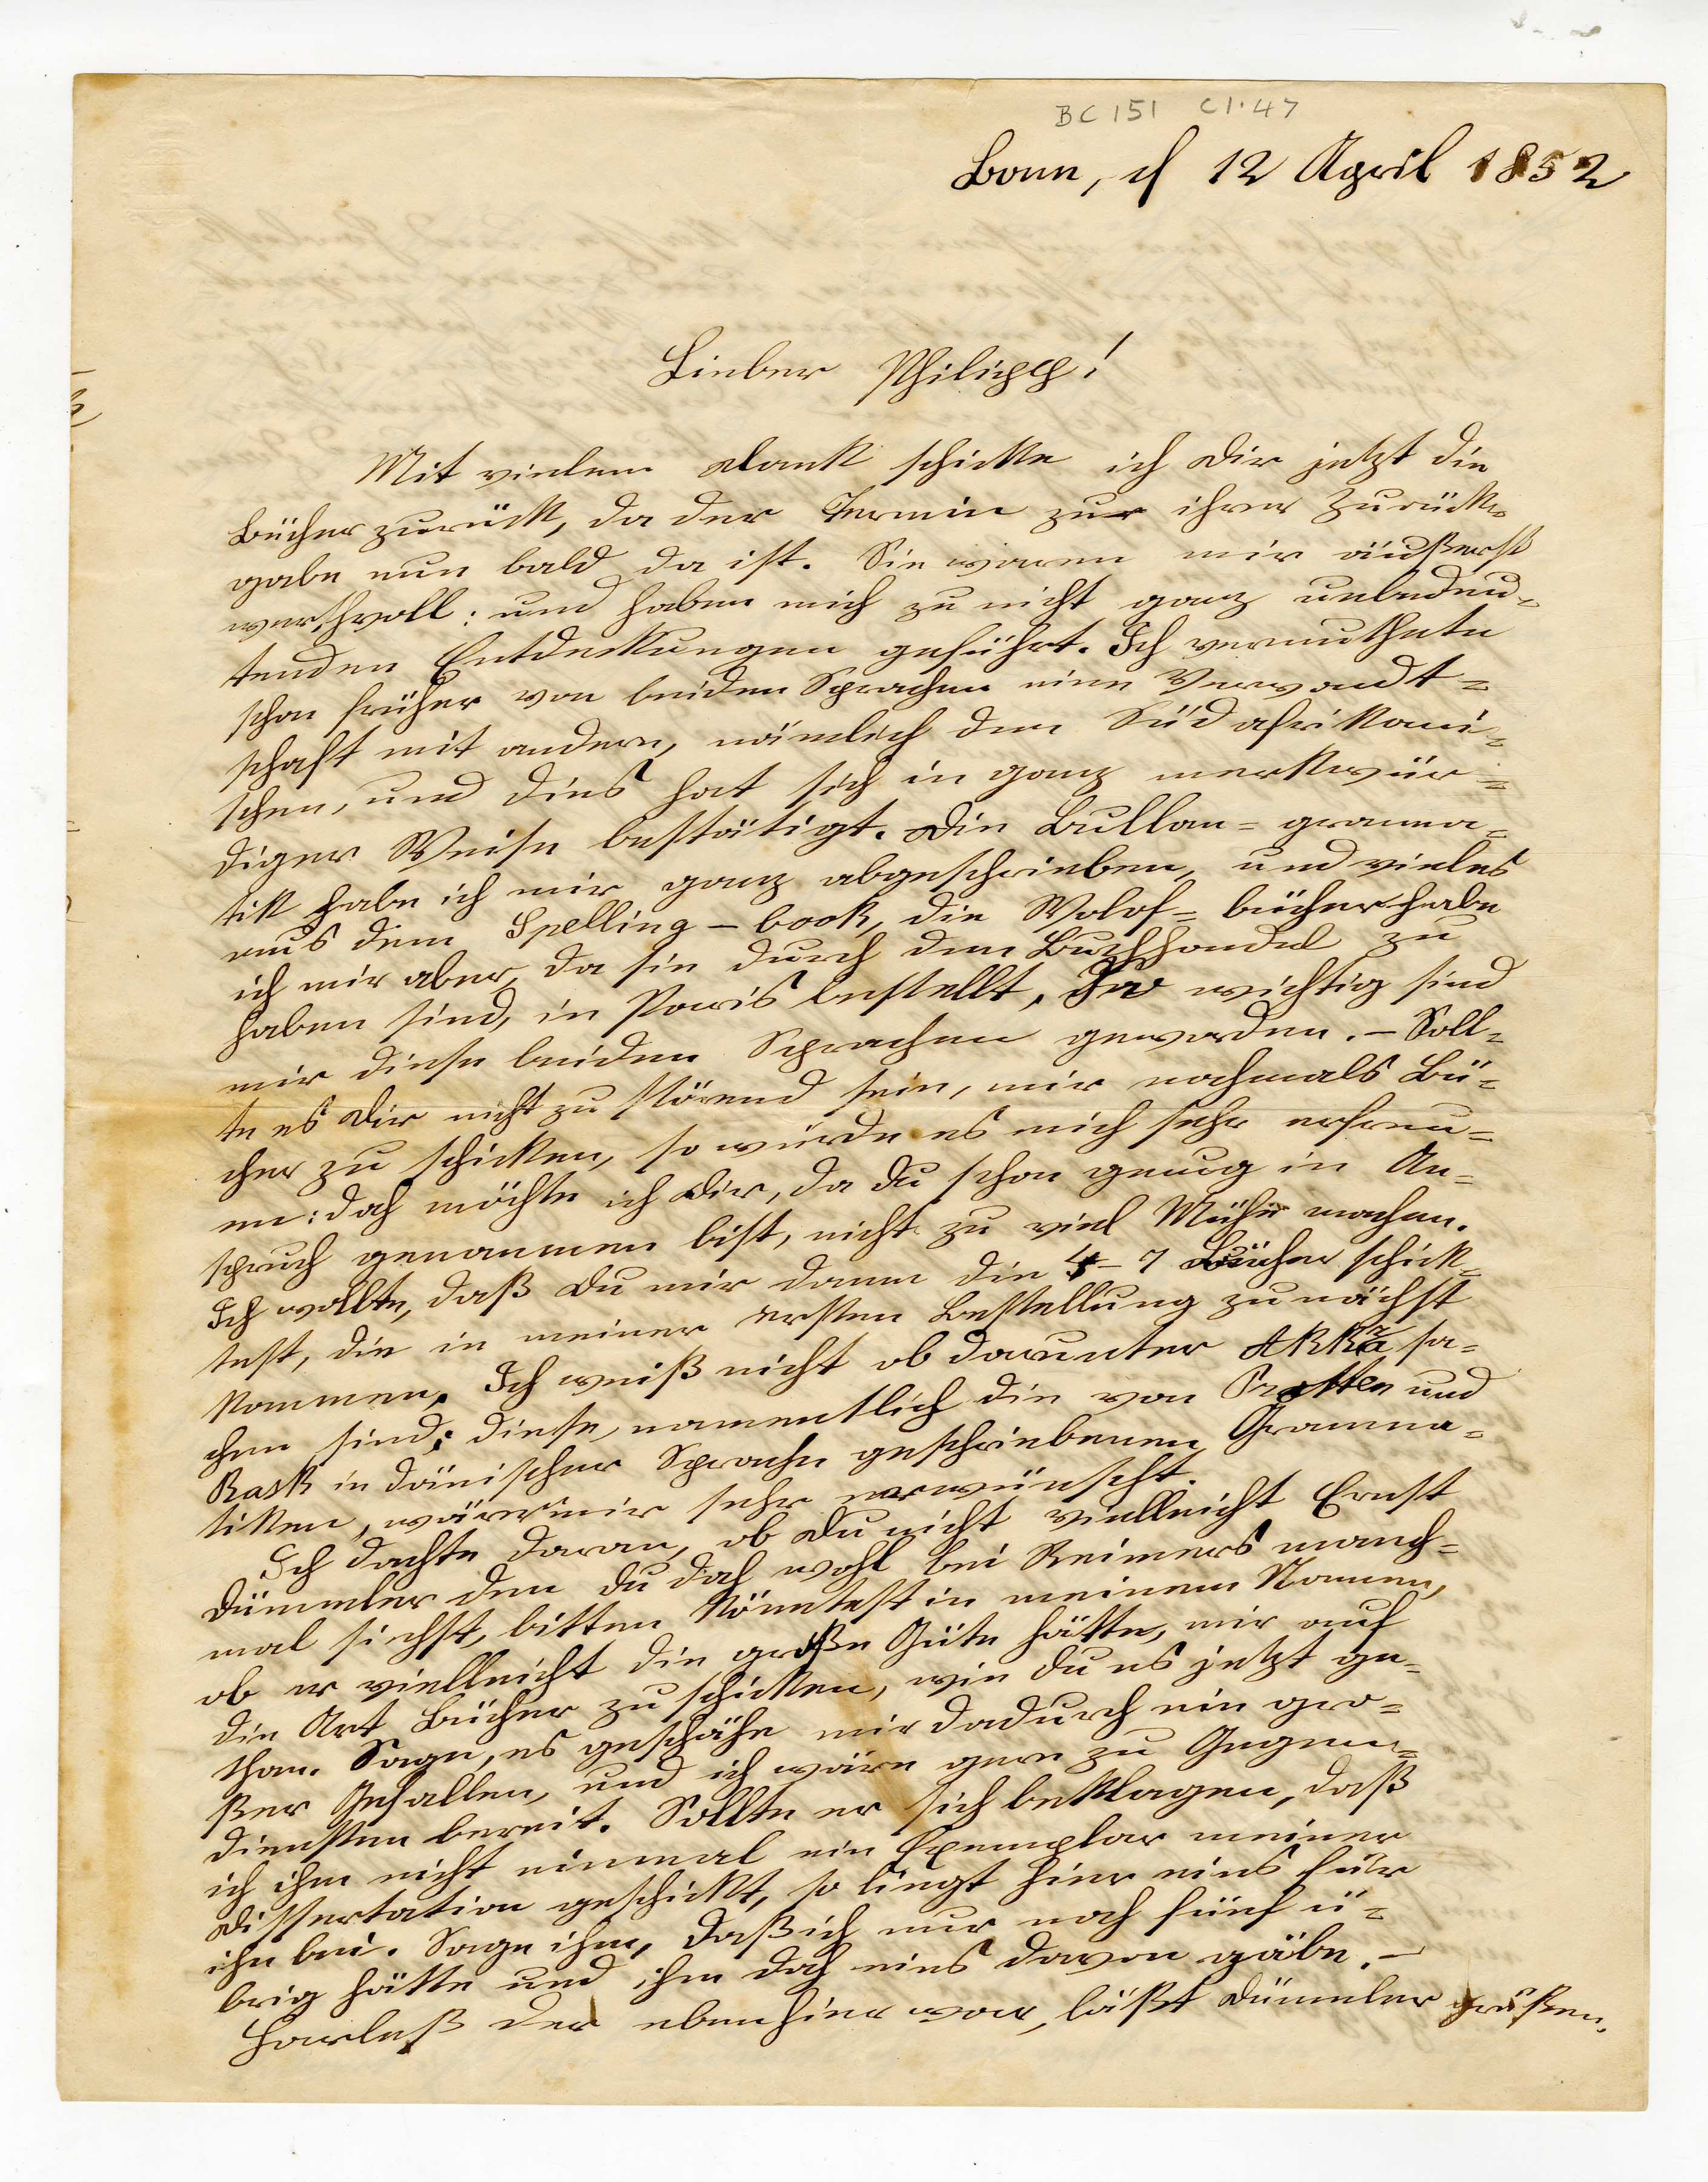 BC 151 C1.47
Bonn, d 12 April 1852
Lieber Philipp!
Mit vielem Dank schicke ich Dir jetzt die
Bücher zurück, da der Termin zur ihrer Zurück-
gabe nun bald da ist. Sie waren mir äußerst
werthvoll: und haben mich zu nicht ganz unbedeu-
tenden Entdeckungen geführt. Ich vermuthete
schon früher von beiden Sprachen eine Verwandt-
schaft mit andern, nämlich den Südafrikani-
schen, und dies hat sich in ganz merkwür-
diger Weise bestätigt. Die Bullom-gramma-
tik habe ich mir ganz abgeschrieben, und vieles
aus dem Spelling-book, die Wolof-bücher habe
ich mir aber, da sie durch den Buchhandel zu
haben sind, in Paris bestellt. So wichtig sind
mir diese beiden Sprachen geworden. – Soll-
te es Dir nicht zu störend sein, mir nochmals Bü-
cher zu schicken, so würde es mich sehr erfreu-
en: doch möchte ich Dir, da du schon genug in An-
spruch genommen bist, nicht zu viel Mühe machen.
Ich wollte, daß Du mir dann die 4-7 Bücher schick-
test, die in meiner ersten Bestellung zunächst
kommen. Ich weiß nicht ob darunter Akra sa-
chen sind; diese, namentlich die von Protten und
Rask in dänischer Sprache geschriebenen Gramma-
tiken, wären mir sehr erwünscht.
Ich dachte daran, ob Du nicht vielleicht Ernst
Dümmler den du doch wohl bei Reimers manch-
mal siehst, bitten könntest in meinem Namen,
ob er vielleicht die große Güte hätte, mir auf
die Art Bücher zu schicken, wie du es jetzt ge-
than. Sage, es geschähe mir dadurch ein gro-
ßer Gefallen, und ich wäre gern zu Gegen-
diensten bereit. Sollte er sich beklagen, daß
ich ihm nicht einmal ein Exemplar meiner
Dissertation geschickt, so liegt hier eins für
ihn bei. Sage ihm, daß ich nur noch fünf ü-
brig hätte und ihm doch eins davon gäbe. –
Harleß der eben hier war, läßt Dümmler grüßen.